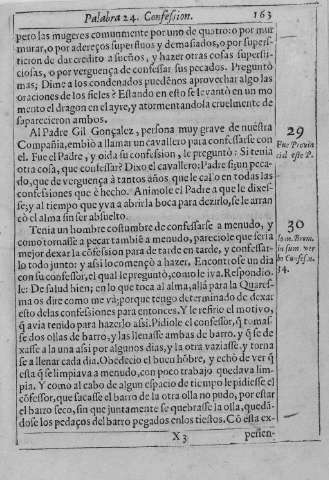 Palabra 24. Confession. 163
pero las mugeres comunmente por uno de quatro: o por mur
murar, o por adereços superfluos y demasiados, o por supers-
ticion de dar credito a sueños, y hazer otras cosas supersti-
ciosas, o por verguença de confessar sus pecados. Preguntò
mas; Dime a los condenados puedenles aprovechar algo las
oraciones de los fieles? Estando en esto se levantò en un mo
mento el dragon en el ayre, y atormentandola cruelmente de
saparecieron ambos.
Al Padre Gil Gonçalez, persona muy grave de nuestra
Compañia, embiò a llamar un cavallero para confessarse con
el. Fue el Padre, y oida su confession, le preguntò: Si tenia
otra cosa, que confessar? Dixo el cavallero: Padre si; un peca-
do, que de verguença à tantos años, que le callo en todas las
confessiones que è hecho. Animole el Padre a que le dixes-
se; y al tiempo que yva a abrir la boca para dezirlo, se le arran
cò el alma sin ser absuelto.
29
Fue Provin
cial este P.
Tenia un hombre costumbre de confessarse a menudo, y
como tornasse a pecar tambiè a menudo, pareciole que seria
mejor dexar la côfession para de tarde en tarde, y confessar-
lo todo junto: y assi lo començò a hazer. Encontrose un dia
con su confessor, el qual le preguntò, como le iva. Respondio-
le: De salud bien; en lo que toca al alma, allà para la Quares-
ma os dire como me và; porque tengo determinado de dexar
esto de las confessiones para entonces. Y le refirio el motivo,
q̃ avia tenido para hazerlo assi. Pidiole el confessor, q̃ tomas-
se dos ollas de barro, y las llenasse ambas de barro, y q̃ se de
xasse a la una assi por algunos dias, y la otra vaziasse, y torna
se a llenar cada dia. Obedecio el buen hôbre, y echò de ver q̃
esta q̃ se limpiava a menudo, con poco trabajo quedava lim-
pia. Y como al cabo de algun espacio de tiempo le pidiesse el
côfessor, que sacasse el barro de la otra olla no pudo, por estar
el barro seco, sin que juntamente se quebrasse la olla, quedà-
dose los pedaços del barro pegados en los tiestos. Cô esta ex-
30
34.
X 3 perien-